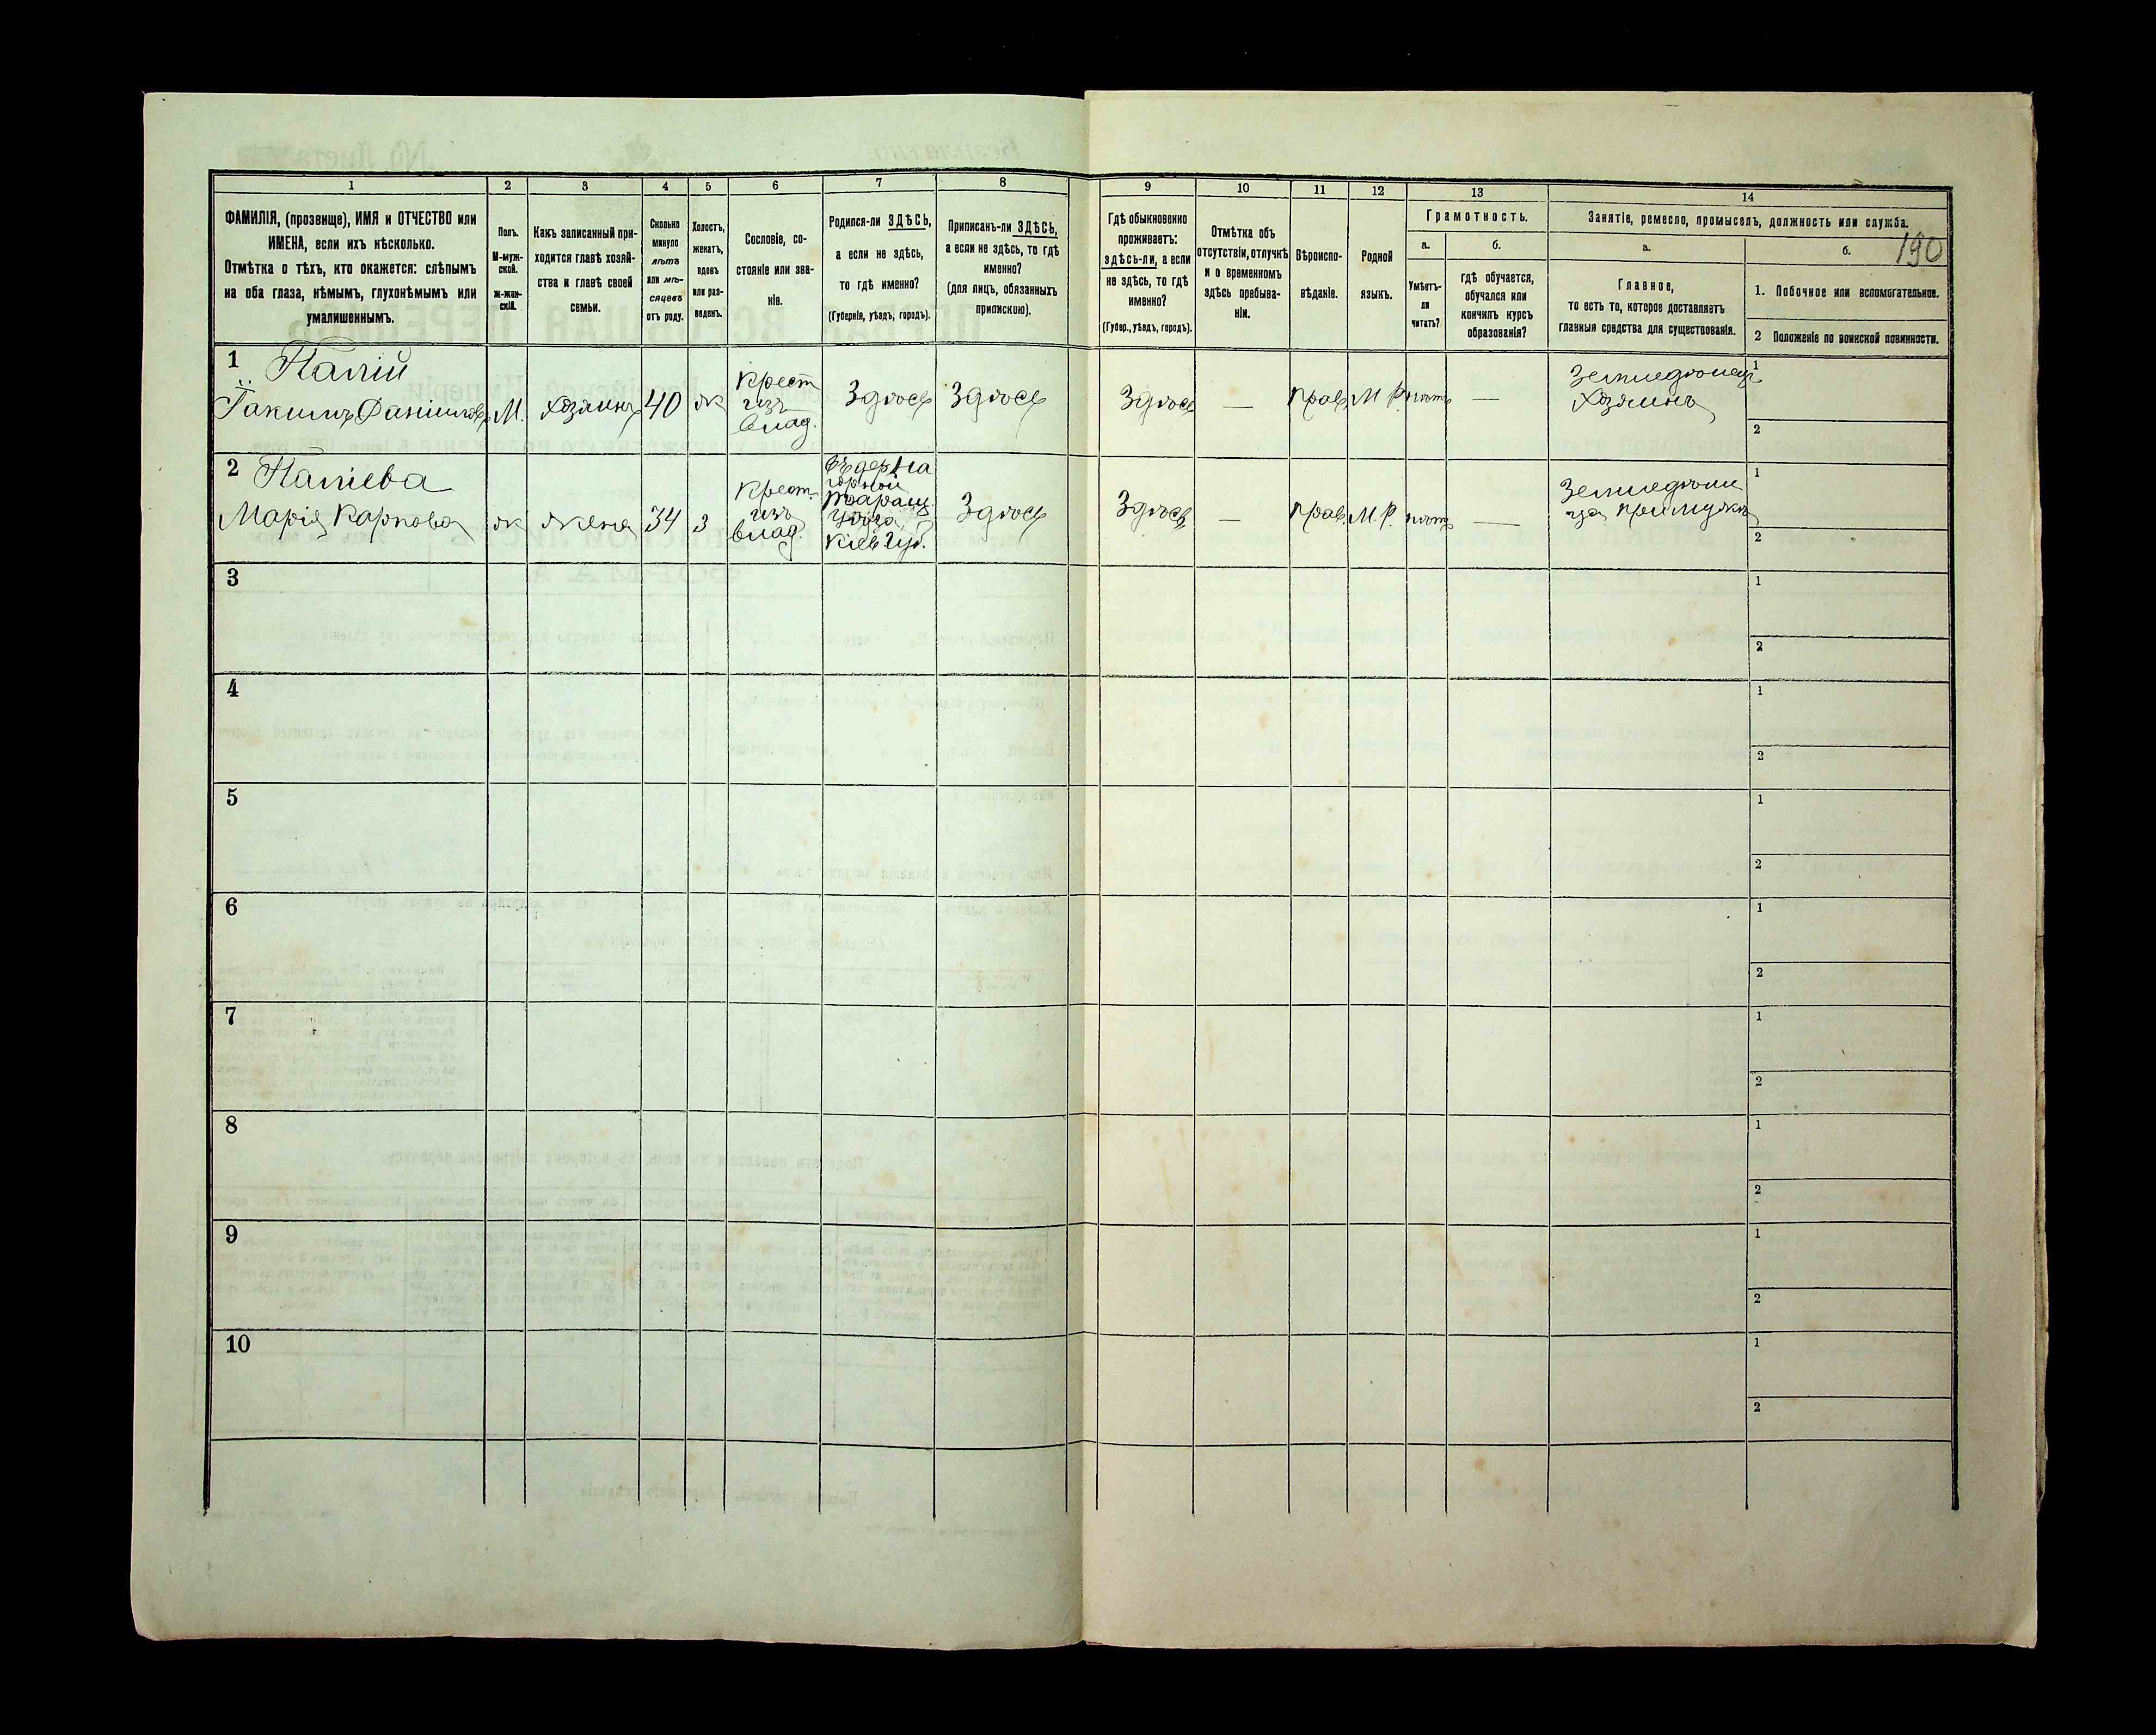 190
1 2 3 4 5 6 7 8 9 10 11 12 13 14
ФАМИЛІЯ, (прозвище), ИМЯ и ОТЧЕСТВО или
ИМЕНА, если ихъ нѣсколько.
Отмѣтка о тѣхъ, кто окажется: слѣпымъ
на оба глаза, нѣмымъ, глухонѣмымъ или
умалишеннымъ.
Полъ.
М-муж-
ской.
Ж-жен-
скій.
Какъ записанный при-
ходится главѣ хозяй-
ства и главѣ своей
семьи.
Сколько
минуло
лѣтъ
или мѣ-
сяцевъ
отъ роду.
Холостъ,
женатъ,
вдовъ
или раз-
веденъ.
Сословіе, со-
стояніе или зва-
ніе.
Родился-ли ЗДѢСЬ,
а если не здѣсь,
то гдѣ именно?
(Губернія, уѣздъ, городъ).
Приписанъ-ли ЗДѢСЬ,
а если не здѣсь, то гдѣ
именно?
(для лицъ, обязанныхъ
припискою).
Гдѣ обыкновенно
проживаетъ:
здѣсь-ли, а если
не здѣсь, то гдѣ
именно?
(Губер., уѣздъ, городъ).
Отмѣтка объ
отсутствіи, отлучкѣ
и о временномъ
здѣсь пребыва-
ніи.
Вѣроиспо-
вѣданіе.
Родной
языкъ.
Грамотность.
а.
Умѣетъ-
ли
читать?
б.
гдѣ обучается,
обучался или
кончилъ курсъ
образованія?
Занятіе, ремесло, промыселъ, должность или служба.
а.
Главное,
то есть то, которое доставляетъ
главныя средства для существованія.
б.
1. Побочное или вспомогательное.
2 Положеніе по воинской повинности.
1 Палій
Іакимъ Даниловъ
М.
хозяинъ
40
ж
крест
изъ
влад.
Здѣсь
Здѣсь
Здѣсь
—
прав.
М Р.
нѣтъ
—
Земледѣлецъ
Хозяинъ
1
2
2 Паліева
Марія Карпова
ж
жена
34
з
Крест.
изъ
влад.
Таращ
уѣзда
Кіев Губ.
Здѣсь
Здѣсь
—
прав.
М. Р.
нѣтъ
—
Земледѣли
ца при мужѣ
1
2
3
1
2
4
1
2
5
1
2
6
1
2
7
1
2
8
1
2
9
1
2
10
1
2